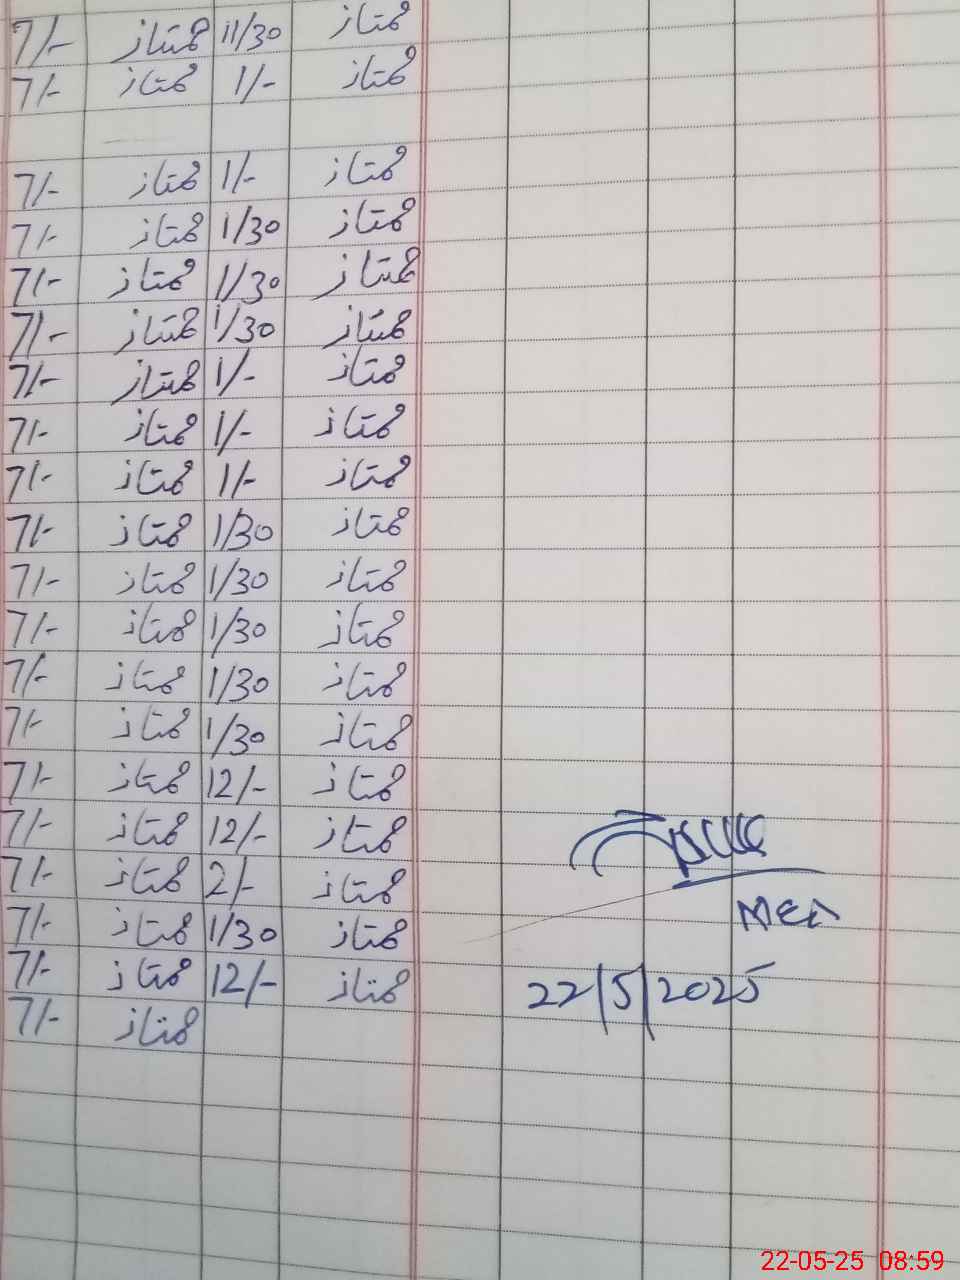 7/- ممتاز 11/30 ممتاز
7/- ممتاز 1/- ممتاز
7/- ممتاز 1/- ممتاز
7/- ممتاز 1/30 ممتاز
7/- ممتاز 1/30 ممتاز
7/- ممتاز 1/30 ممتاز
7/- ممتاز 1/- ممتاز
7/- ممتاز 1/- ممتاز
7/- ممتاز 1/- ممتاز
7/- ممتاز 1/30 ممتاز
7/- ممتاز 1/30 ممتاز
7/- ممتاز 1/30 ممتاز
7/- ممتاز 1/30 ممتاز
7/- ممتاز 1/30 ممتاز
7/- ممتاز 12/- ممتاز
7/- ممتاز 12/- ممتاز
7/- ممتاز 2/- ممتاز
7/- ممتاز 1/30 ممتاز
7/- ممتاز 12/- ممتاز
7/- ممتاز
MEA
22/5/2025
22-05-25 08:59